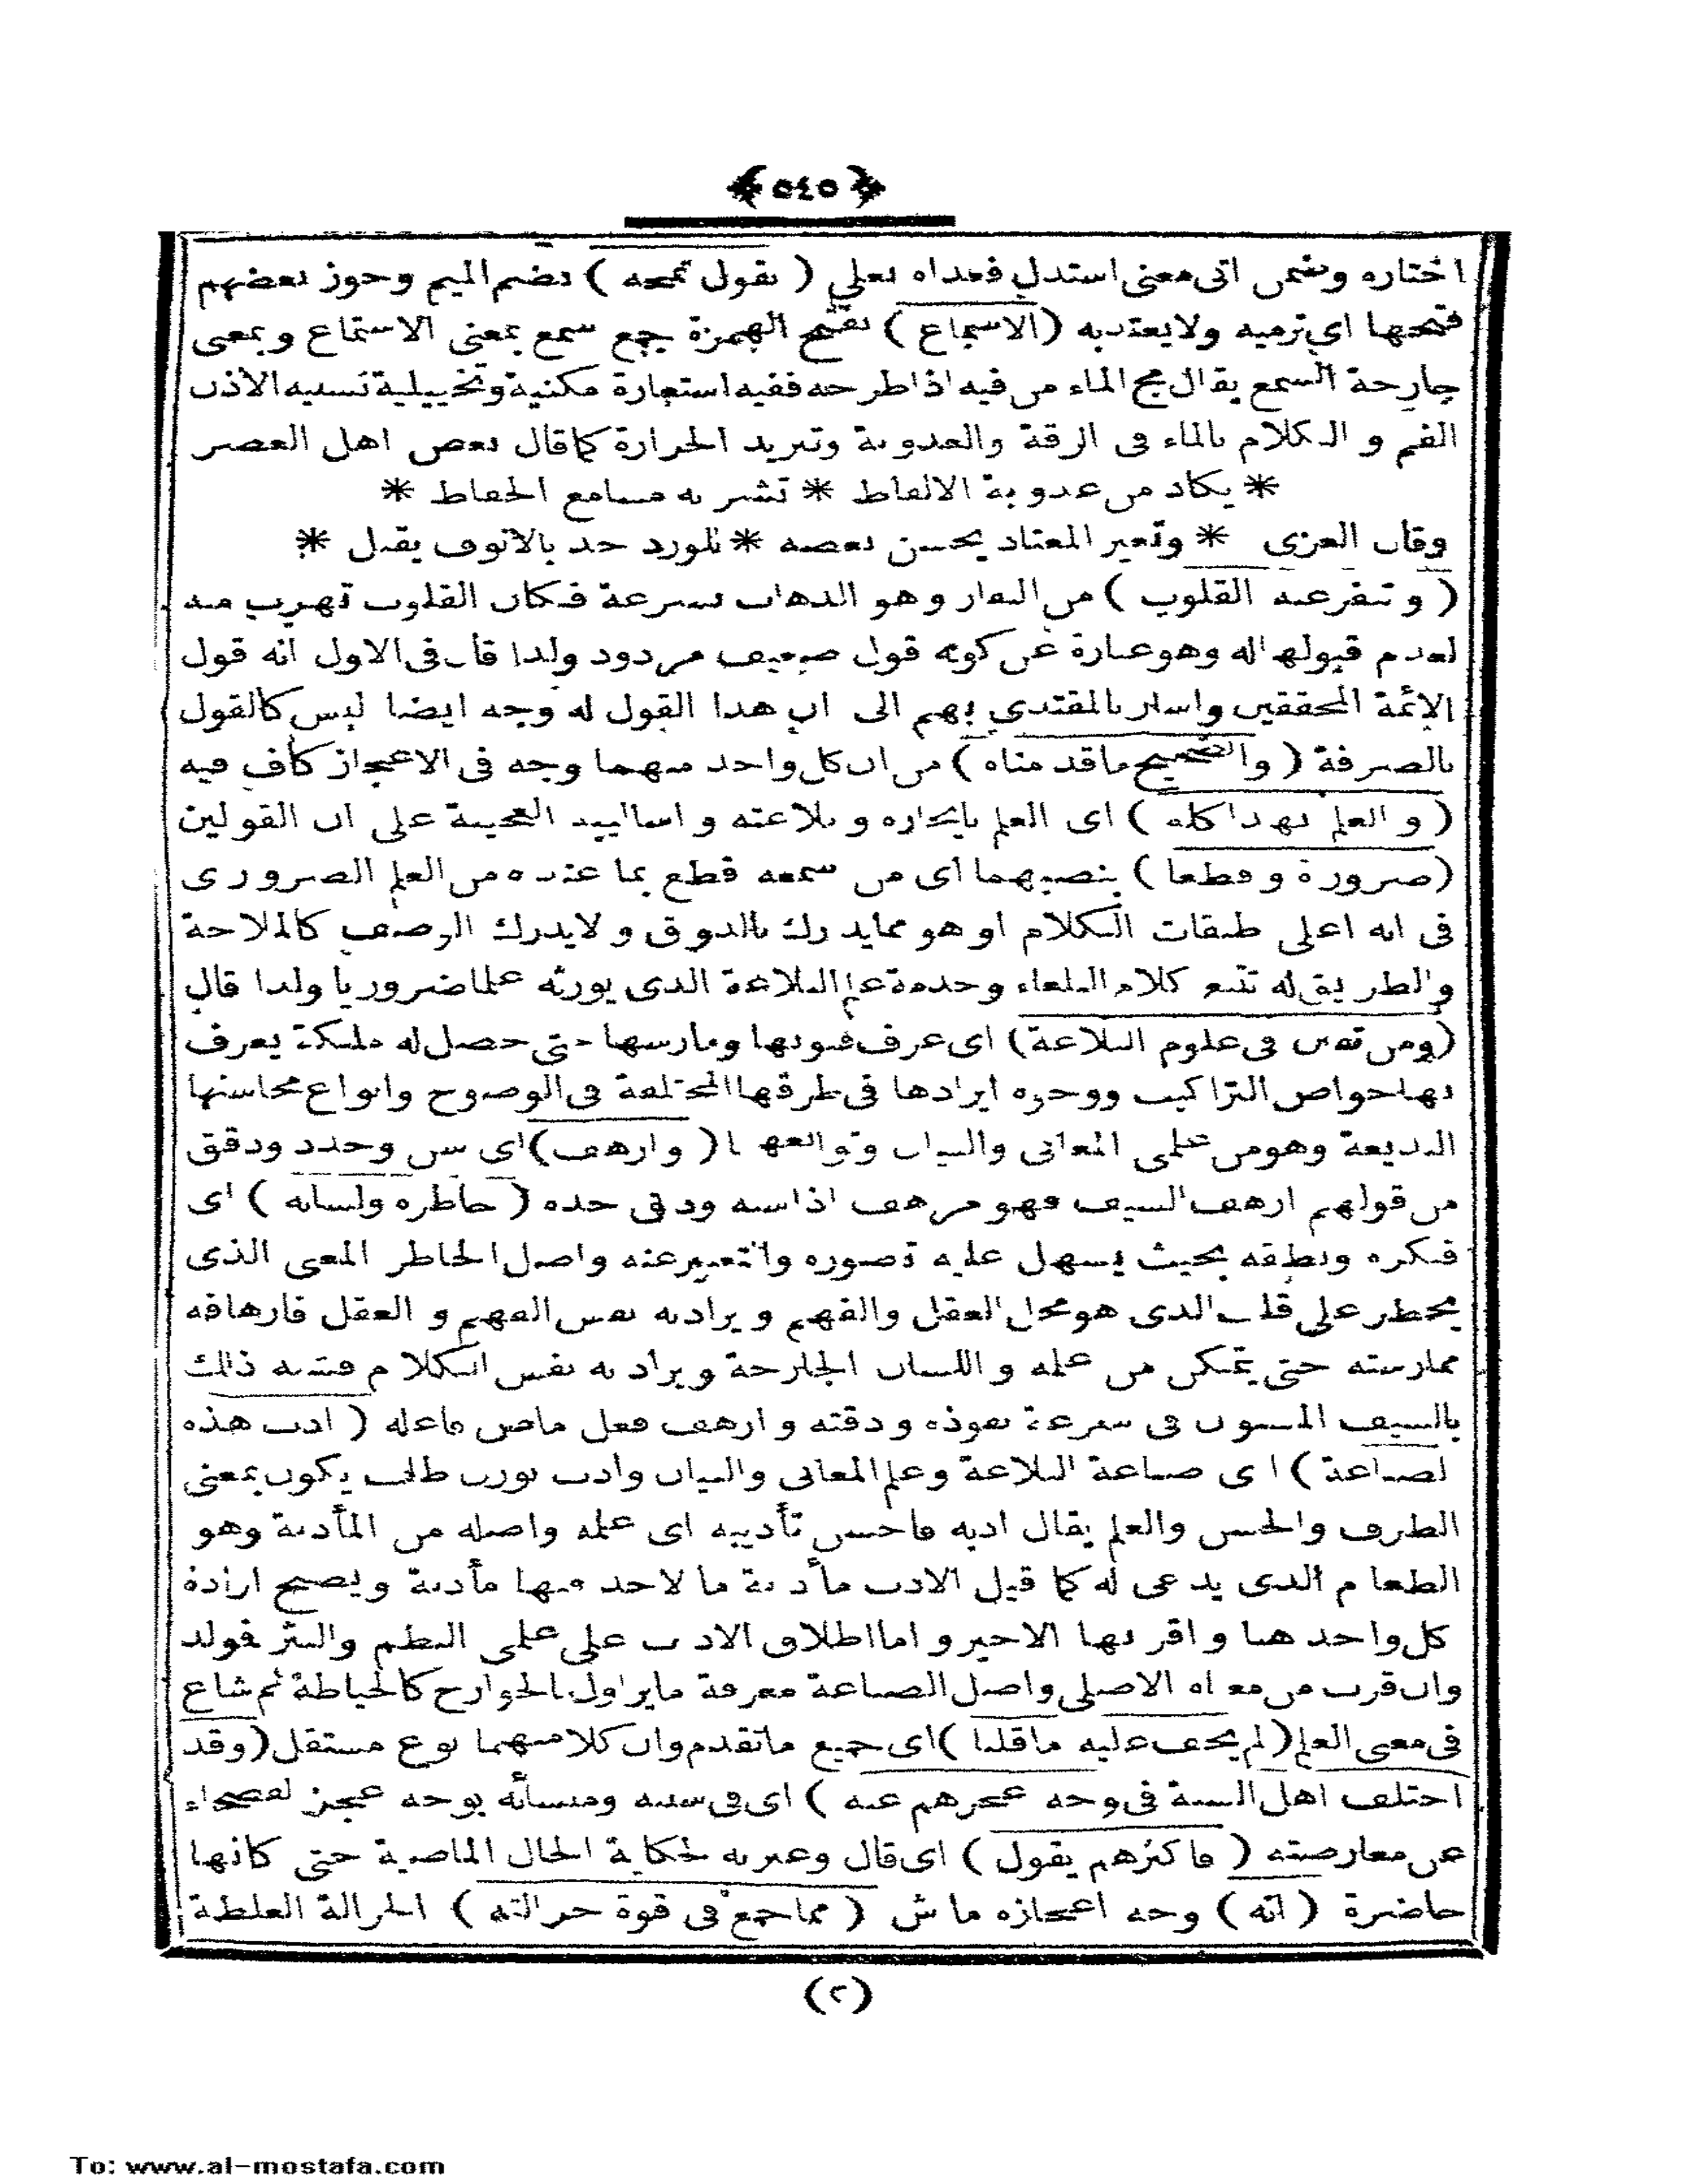 ﴿٥٤٥﴾
اختاره وضمن اتى معنى استدل فعداه بعلى ( بقول تمجه ) بضم الميم وجوز بعضهم
فتحها اى ترميه ولا يعتد به ( الاسماع ) بفتح الهمزة جمع سمع بمعنى الاستماع وبمعنى
جارحة السمع يقال مج الماء من فيه اذا طرحه ففيه استعارة مكنية وتخييلية تشبيه الاذن
الفم و الكلام بالماء فى الرقة والعذوبة وتبريد الحرارة كما قال بعض اهل العصر
* يكاد من عذوبة الالفاظ * تشربه مسامع الحفاظ *
وقال الغزى * وتغير المعتاد يحسن بعضه * للورد خد بالانوف يقبل *
( وتنفر عنه القلوب ) من النفار وهو الذهاب بسرعة فكان القلوب تهرب منه
لعدم قبولها له وهو عبارة عن كونه قول ضعيف مردود ولذا قال فى الاول انه قول
الائمة المحققين واشار بالمقتدى بهم الى ان هذا القول له وجه ايضا ليس كالقول
بالصرفة ( والصحيح ما قدمناه ) من ان كل واحد منهما وجه فى الاعجاز كاف فيه
( و العلم بهذا كله ) اى العلم بايجازه و بلاغته و اساليبه العجيبة على ان القولين
( ضرورة وقطعا ) بنصبهما اى من سمعه قطع بما عنده من العلم الضرورى
فى انه اعلى طبقات الكلام او هو مما يدرك بالذوق ولا يدرك الوصف كالملاحة
والطريق له تتبع كلام البلغاء وخدمة علم البلاغة الذى يورثه علما ضروريا ولذا قال
( ومن تفنن فى علوم البلاغة ) اى عرف فنونها ومارسها حتى حصل له ملكة يعرف
بها خواص التراكيب ووجوه ايرادها فى طرقها المختلفة فى الوضوح وانواع محاسنها
البديعة وهو من علمى المعانى والبيان وتوابعها ( وارهف ) اى سن وحدد ودقق
من قولهم ارهف السيف فهو مرهف اذا سنه ودقق حده ( خاطره ولسانه ) اى
فكره ونطقه بحيث يسهل عليه تصوره والتعبير عنه واصل الخاطر المعنى الذى
يخطر على قلب الذى هو محل العقل والفهم و يراد به نفس الفهم و العقل فارهافه
ممارسته حتى يتمكن من علمه و اللسان الجارحة ويراد به نفس الكلام فشبه ذلك
بالسيف المسنون فى سرعة نفوذه ودقته و ارهف فعل ماض فاعله ( ادب هذه
لصناعة ) اى صناعة البلاغة وعلم المعانى والبيان وادب بوزن طلب يكون بمعنى
الظرف والحسن والعلم يقال ادبه فاحسن تأديبه اى علمه واصله من المأدبة وهو
الطعام الذى يدعى له كما قيل الادب مأدبة ما لاحد منها مأدبة ويصح ارادة
كل واحد هنا واقربها الاخير و اما اطلاق الادب على علمى النظم والنثر فولد
وان قرب من معناه الاصلى واصل الصناعة معرفة ما يزاول بالجوارح كالخياطة ثم شاع
فى معنى العلم ( لم يخف عليه ما قلنا ) اى جميع ما تقدم وان كلا منهما نوع مستقل ( وقد
اختلف اهل السنة فى وجه عجزهم عنه ) اى فى سببه ومنشأنه بوجه عجز لفصحاء
عن معارضته ( فاكثرهم يقول ) اى قال وعبر به لحكاية الحال الماضية حتى كانها
حاضرة ( انه ) وجه اعجازه ماش ( مما جمع فى قوة جزالته ) الجزالة الغلظة
(٢)
To: www.al-mostafa.com